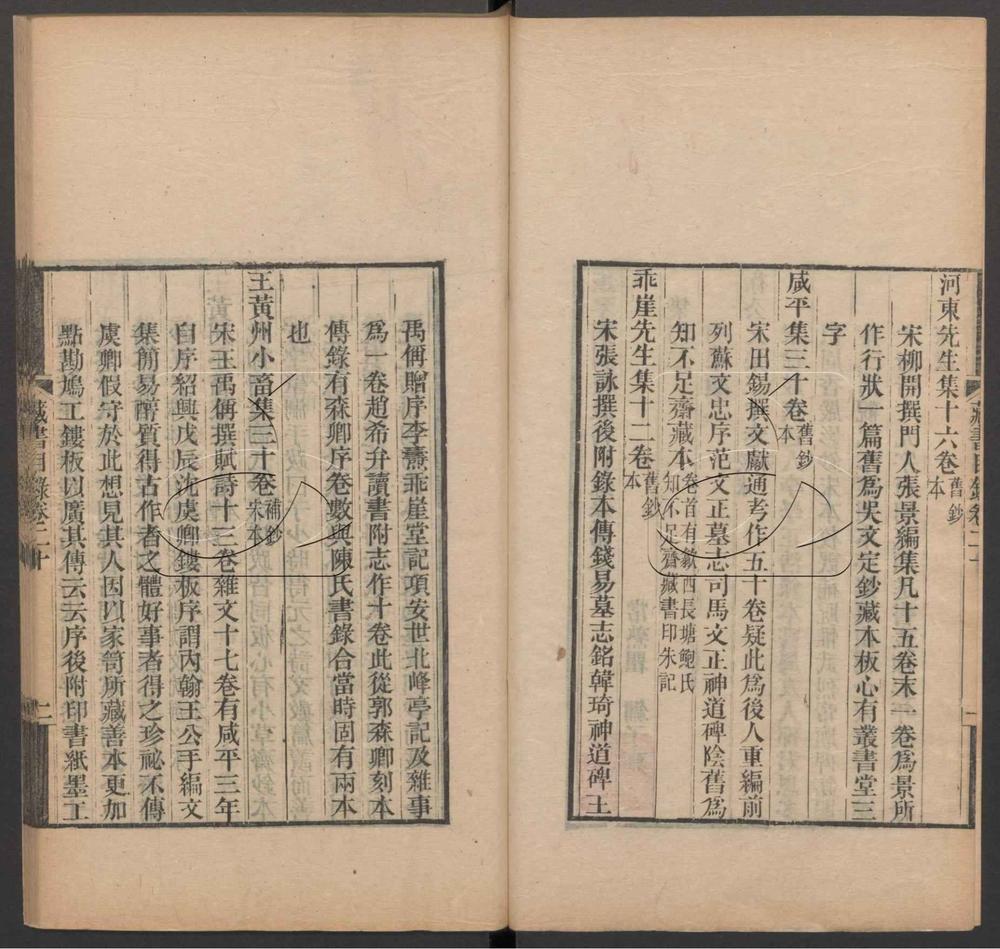 河東先生集十六卷舊鈔本
宋柳開撰門人張景編集凡十五卷末一卷爲景所
作行狀一篇舊爲吳文定鈔藏本板心有叢書堂三
字
咸平集三十卷舊鈔本
宋田錫撰文獻通考作五十卷疑此爲後人重編前
列蘇文忠序范文正墓志司馬文正神道碑陰舊爲
知不足齋藏本卷首有歙西長塘鮑氏知不足齋藏書印朱記
乖崖先生集十二卷舊鈔本
宋張詠撰後附錄本傳錢易墓志銘韓琦神道碑王
禹偁贈序李燾乖崖堂記項安世北峰亭記及雜事
爲一卷趙希弁讀書附志作十卷此從郭森卿刻本
傳錄有森卿序卷數與陳氏書錄合當時固有兩本
也
王黃州小畜集三十卷補鈔宋本
宋王禹偁撰賦詩十三卷雜文十七卷有咸平三年
自序紹興戊辰沈虞卿鏤板序謂內翰王公手編文
集簡易醇質得古作者之體好事者得之珍祕不傳
虞卿假守於此想見其人因以家笥所藏善本更加
點勘鳩工鏤板以廣其傳云云序後附印書紙墨工
藏書目錄卷二十
二